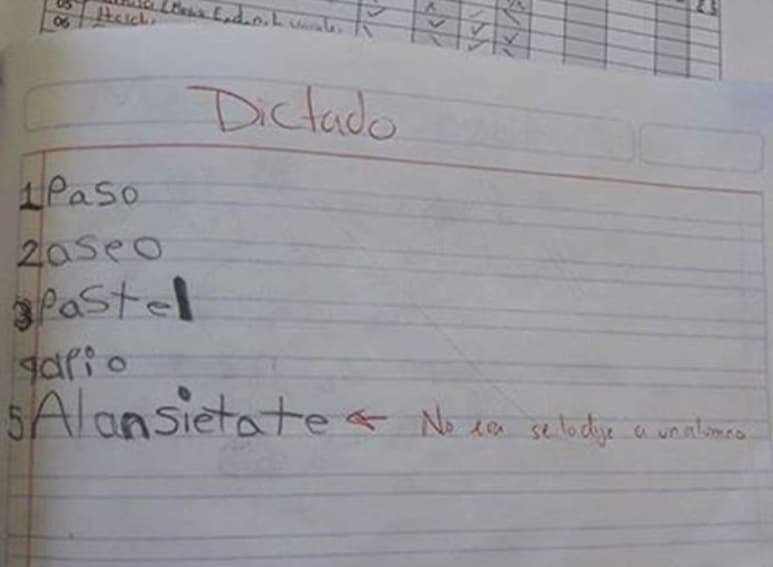 05
06
Dictado
1 Paso
2 aseo
3 Pastel
4 apio
5 Alansietate ← No era se lo dije a un alumno